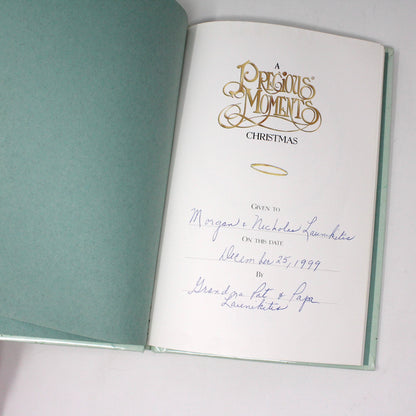 A
PRECIOUS
MOMENTS
CHRISTMAS
GIVEN TO
Morgan & Nicholis Launikitis
ON THIS DATE
December 25, 1999
BY
Grandma Pat & Papa
Launikitis